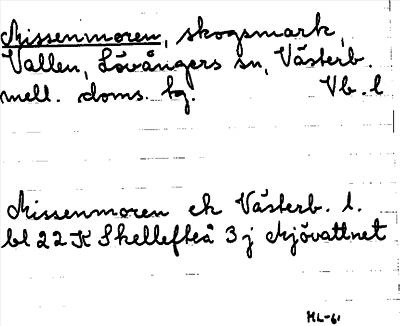 Missenmoren, skogsmark,
Vallen, Lövångers sn, Västerb.
mell. doms. bg. Vb. l
Missenmoren ek Västerb. l.
bl 22 K Skellefteå 3 j Mjövattnet
ML-61